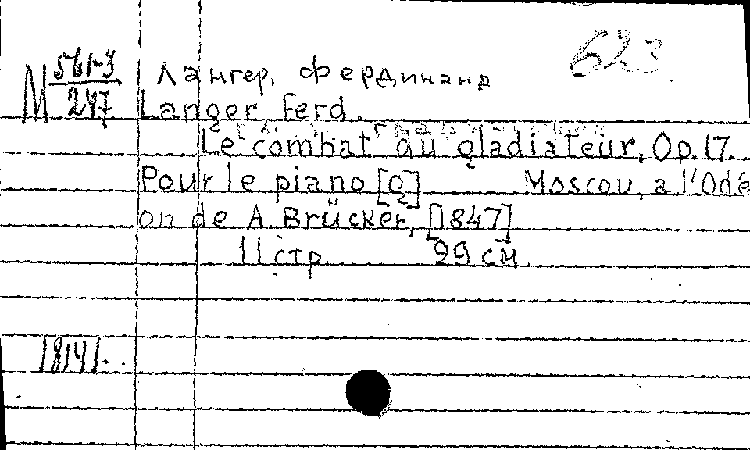 623
М 561-3/247
Лангер, Фердинанд
Langer, Ferd.
Le combat du gladiateur, Op. 17.
Pour le piano [O] Moscou, a l'Odé
on de A. Brücker, [1847]
11 стр 29 см.